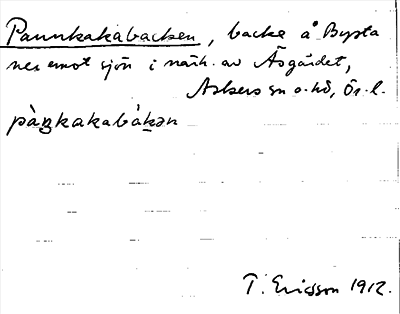 Pannkakabacken, backe å Bysta
ner emot sjön i närh. av Åsgärdet,
Askers sn o. hd, Ör. l.
pàŋkakabákən
T. Ericsson 1912.